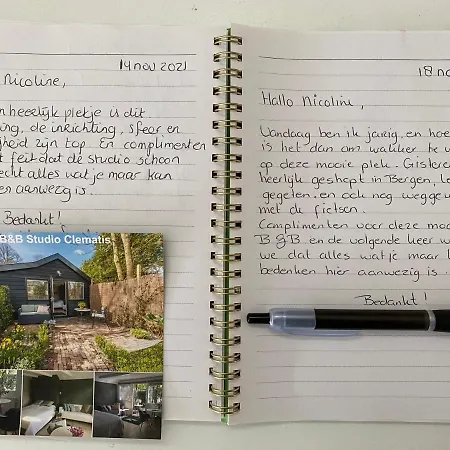 14 nov 2021
Nicoline,
en heerlijk plekje is dit
ing, de inrichting, sfeer en
gheid zijn top. En complimenten
t feit dat de studio schoon
echt alles wat je maar kan
en aanwezig is.
Bedankt!
B&B Studio Clematis
18 nov
Hallo Nicoline,
Vandaag ben ik jarig, en hoe
is het dan om wakker te w
op deze mooie plek. Gistere
heerlijk geshopt in Bergen, le
gegeten. en ook nog wegge
met de fietsen.
Complimenten voor deze moo
B&B. en de volgende keer w
we dat alles wat je maar k
bedenken hier aanwezig is.
Bedankt!